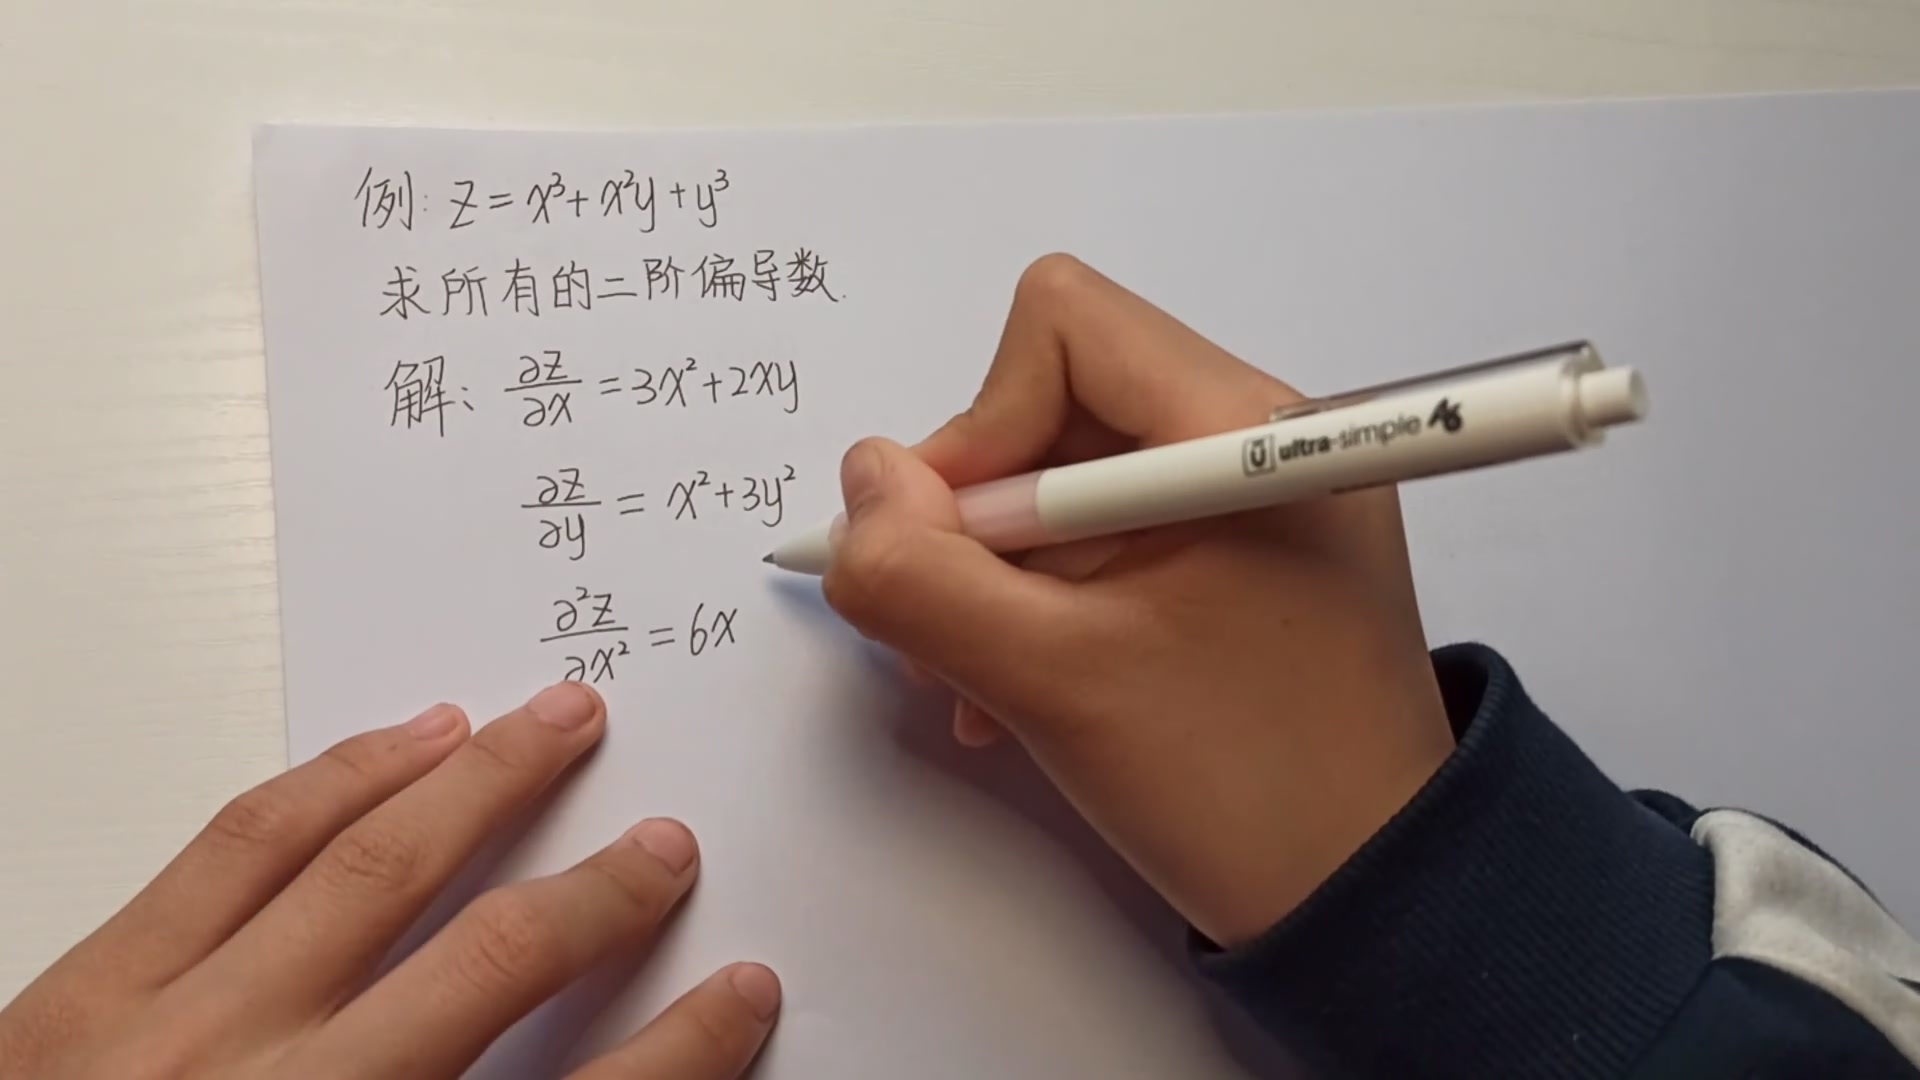 例: z = x³ + x²y + y³
求所有的二阶偏导数.
解: ∂z/∂x = 3x² + 2xy
∂z/∂y = x² + 3y²
∂²z/∂x² = 6x
Ü ultra-simple A6